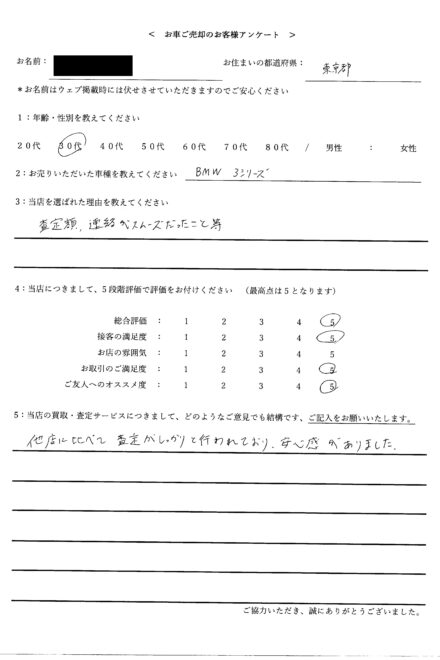 < お車ご売却のお客様アンケート >
お名前： お住まいの都道府県： 東京都
*お名前はウェブ掲載時には伏せさせていただきますのでご安心ください
1：年齢・性別を教えてください
20代 30代 40代 50代 60代 70代 80代 / 男性 ： 女性
2：お売りいただいた車種を教えてください BMW 3シリーズ
3：当店を選ばれた理由を教えてください
査定額、連絡がスムーズだったこと等
4：当店につきまして、5段階評価で評価をお付けください （最高点は5となります）
総合評価 ： 1 2 3 4 5
接客の満足度 ： 1 2 3 4 5
お店の雰囲気 ： 1 2 3 4 5
お取引のご満足度 ： 1 2 3 4 5
ご友人へのオススメ度 ： 1 2 3 4 5
5：当店の買取・査定サービスにつきまして、どのようなご意見でも結構です、ご記入をお願いいたします。
他店に比べて査定がしっかりと行われており、安心感がありました。
ご協力いただき、誠にありがとうございました。